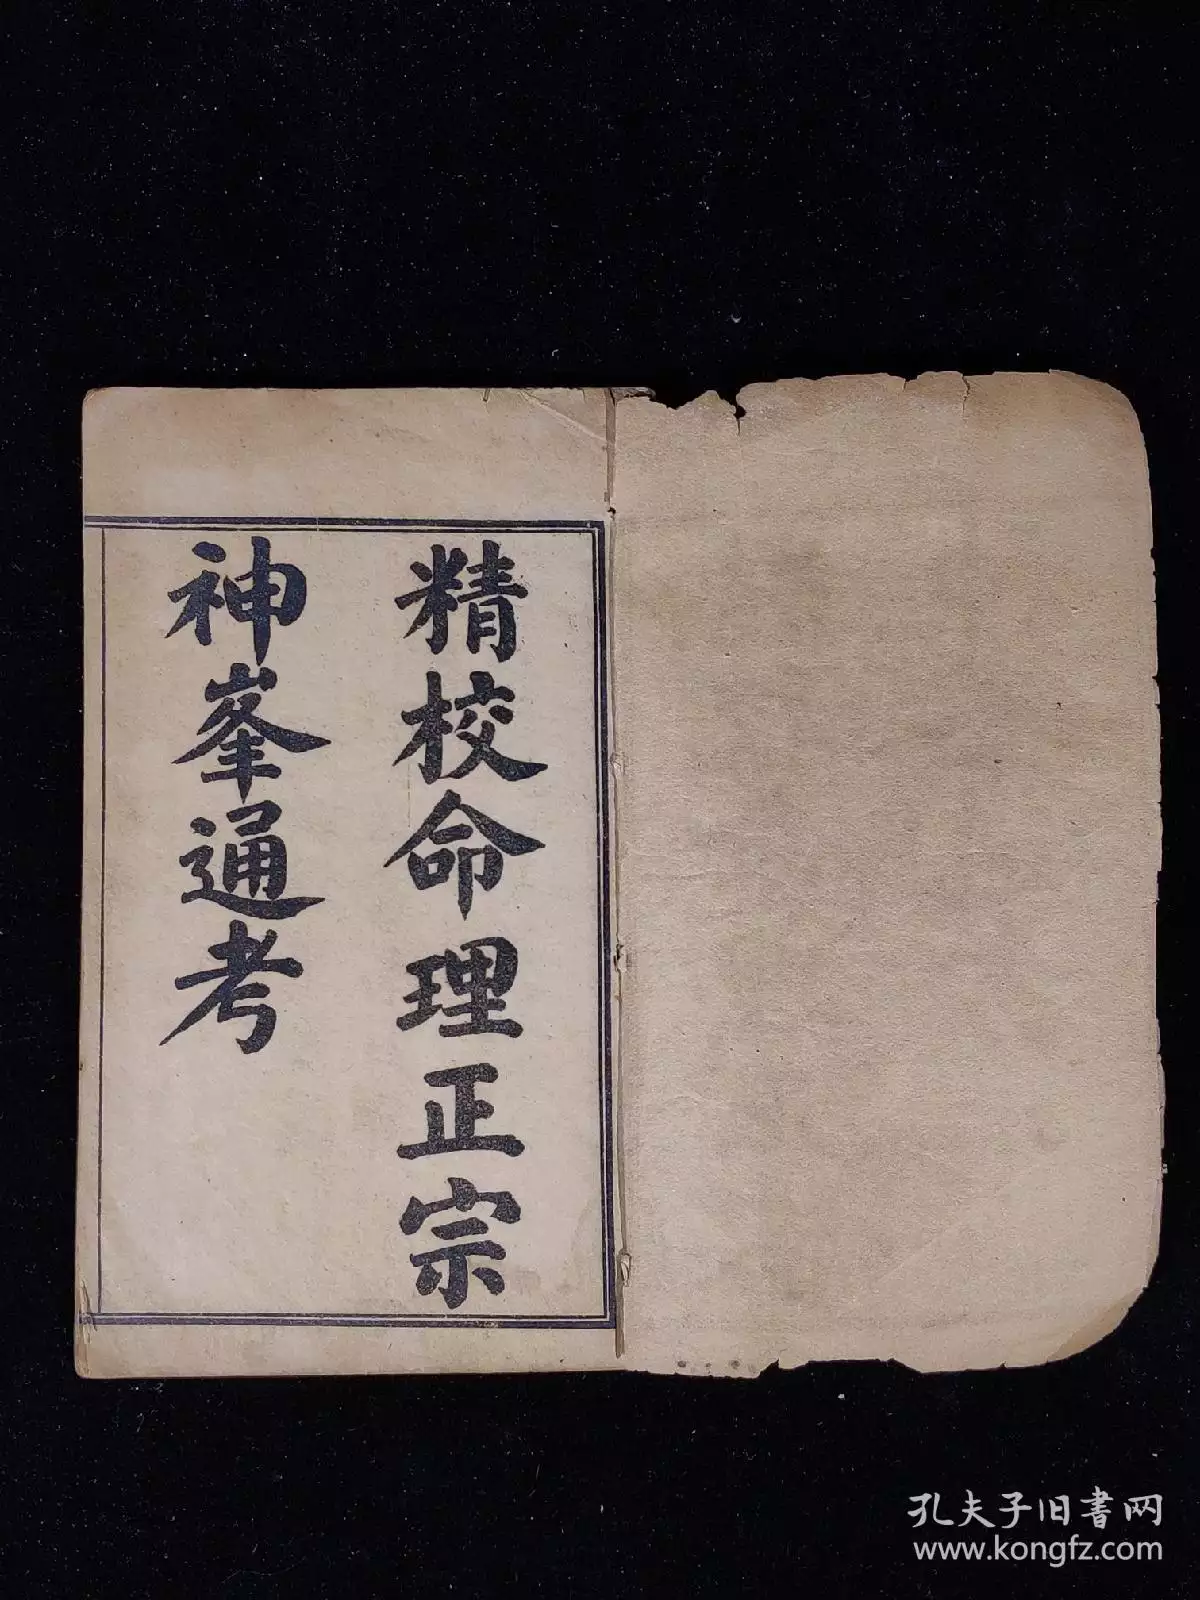 精校命理正宗
神峯通考
孔夫子旧書网
www.kongfz.com